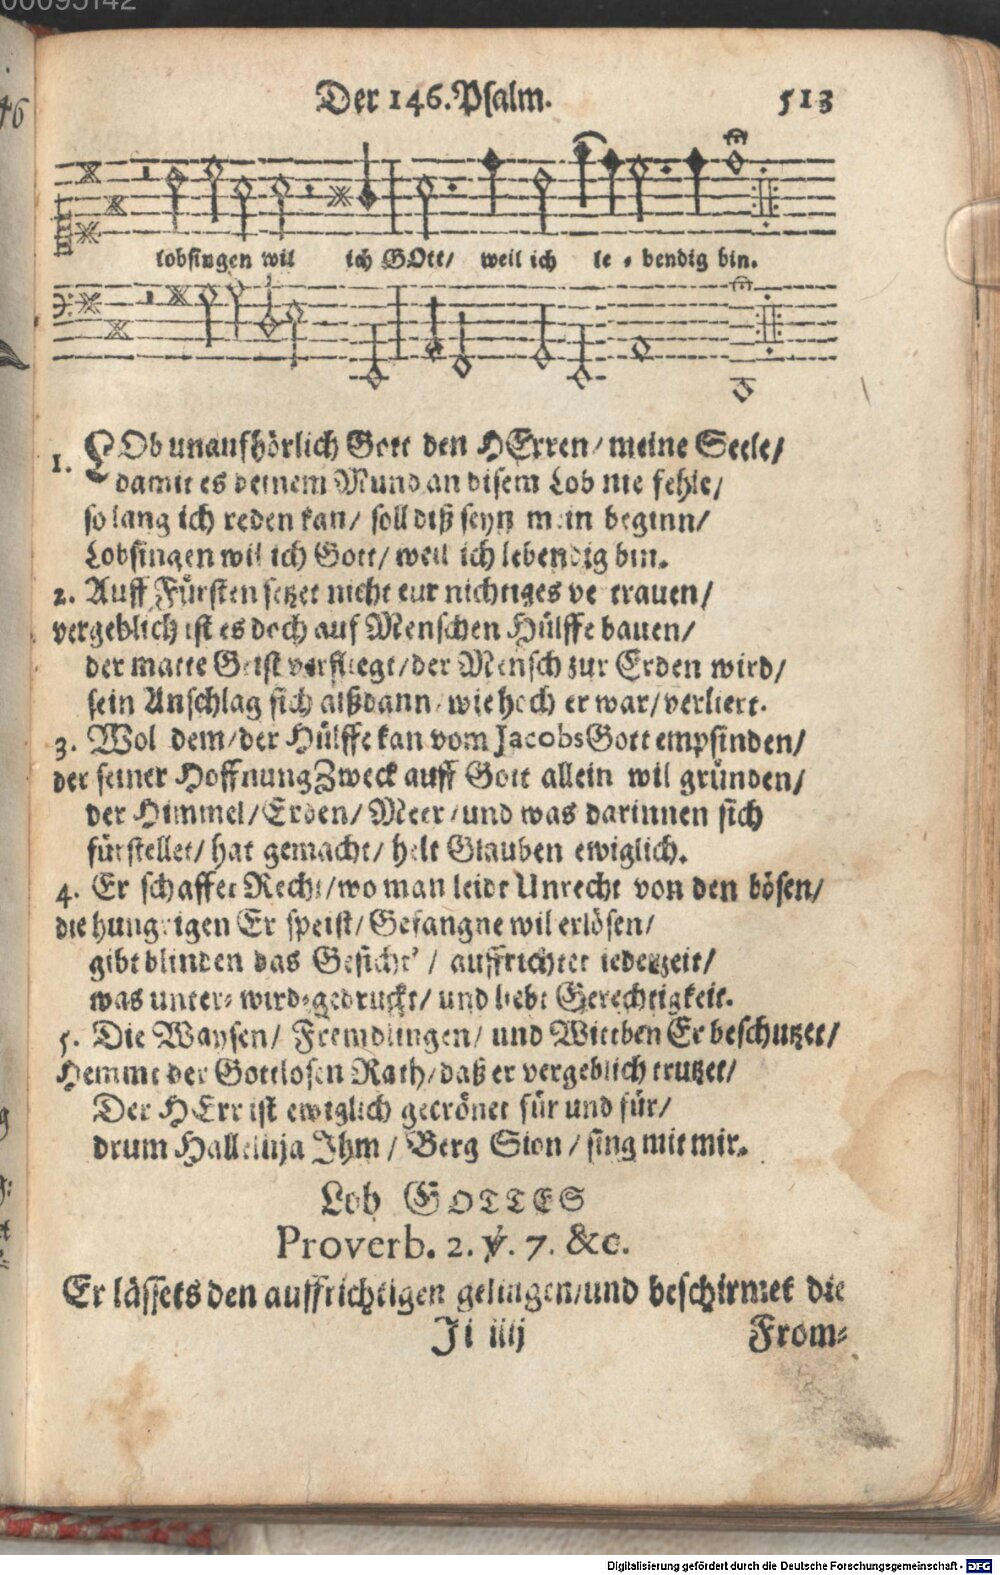 00095142
Der 146. Psalm. 513
lobsingen wil ich GOtt/ weil ich le - bendig bin.
1. LOb unaufhörlich Gott den HErren/ meine Seele/
damit es deinem Mund an disem Lob nie fehle/
so lang ich reden kan/ soll diß seyn mein beginn/
Lobsingen wil ich Gott/ weil ich lebendig bin.
2. Auff Fürsten setzet nicht eur nichtiges ve trauen/
vergeblich ist es doch auf Menschen Hülffe bauen/
der matte Geist verfliegt/ der Mensch zur Erden wird/
sein Anschlag sich alßdann/ wie hoch er war/ verliert.
3. Wol dem/ der Hülffe kan vom Jacobs Gott empfinden/
der seiner Hoffnung Zweck auff Gott allein wil gründen/
der Himmel/ Erden/ Meer/ und was darinnen sich
fürstellet/ hat gemacht/ helt Glauben ewiglich.
4. Er schaffet Recht/ wo man leidt Unrecht von den bösen/
die hungrigen Er speist/ Gefangne wil erlösen/
gibt blinden das Gesicht/ auffrichtet iederzeit/
was unter- wird-gedruckt/ und liebt Gerechtigkeit.
5. Die Waysen/ Fremdlingen/ und Wittben Er beschutzet/
Hemmt der Gottlosen Rath/ daß er vergeblich trutzet/
Der HErr ist ewiglich gecrönet für und für/
drum Halleluja Ihm/ Berg Sion/ sing mit mir.
Lob GOTTES
Proverb. 2. ℣. 7. &c.
Er lässets den auffrichtigen gelingen/ und beschirmet die
Ii iiij From-
Digitalisierung gefördert durch die Deutsche Forschungsgemeinschaft - DFG